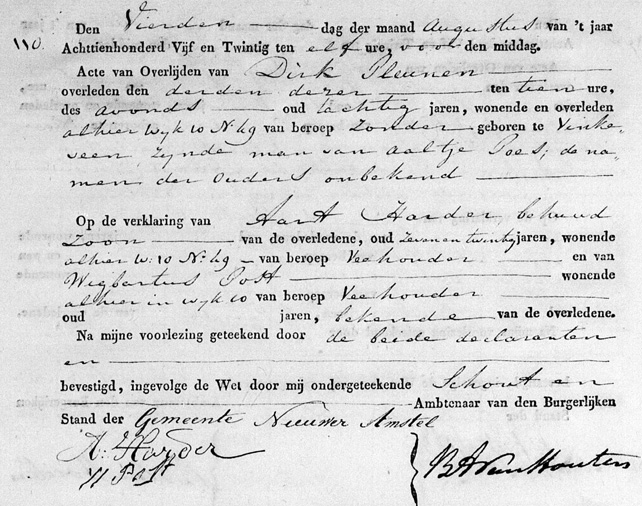 Den Vierden dag der maand Augustus van 't jaar
110. Achttienhonderd Vijf en Twintig ten elf ure, voor den middag.
Acte van Overlijden van Dirk Pleunen
overleden den derden dezer ten tien ure,
des avonds oud tachtig jaren, wonende en overleden
alhier Wyk 10 No 49 van beroep Zonder geboren te Vinke-
veen, Zynde man van Aaltje Poes; de na-
men der Ouders onbekend
Op de verklaring van Aart Harder behuwd
Zoon van de overledene, oud Zeven en twintig jaren, wonende
alhier W: 10 No 49 van beroep Veehouder en van
Wigbartus Post wonende
alhier in Wyk 10 van beroep Veehouder
oud jaren, bekende van de overledene.
Na mijne voorlezing geteekend door de beide declaranten
en
bevestigd, ingevolge de Wet door mij ondergeteekende Schout en
Ambtenaar van den Burgerlijken
Stand der Gemeente Nieuwer Amstel
A: Harder
W Post
BA van Houten